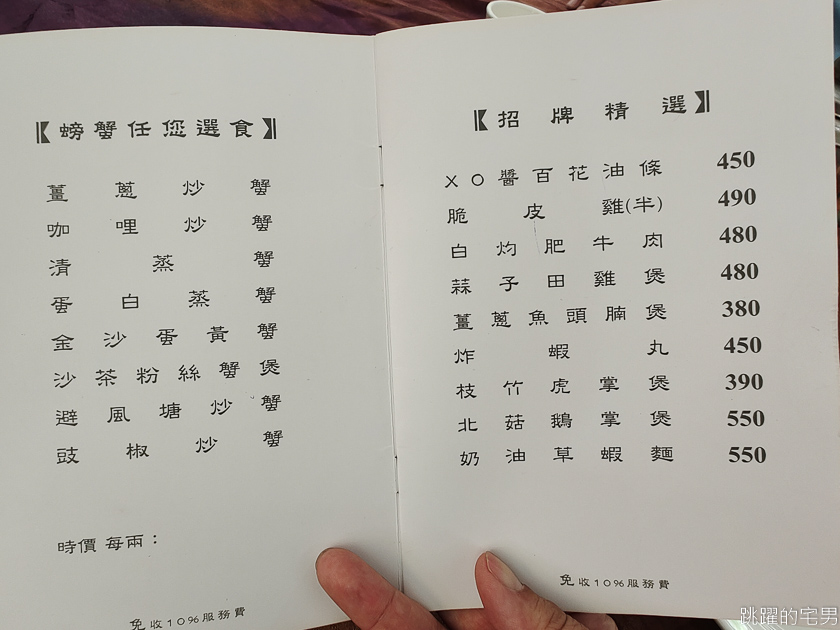 【螃蟹任您選食】
薑蔥炒蟹
咖哩炒蟹
清蒸蟹
蛋白蒸蟹
金沙蛋黃蟹
沙茶粉絲蟹煲
避風塘炒蟹
豉椒炒蟹
時價 每兩：
免收10%服務費
【招牌精選】
XO醬百花油條 450
脆皮雞(半) 490
白灼肥牛肉 480
蒜子田雞煲 480
薑蔥魚頭腩煲 380
炸蝦丸 450
枝竹虎掌煲 390
北菇鵝掌煲 550
奶油草蝦麵 550
免收10%服務費
跳躍的宅男